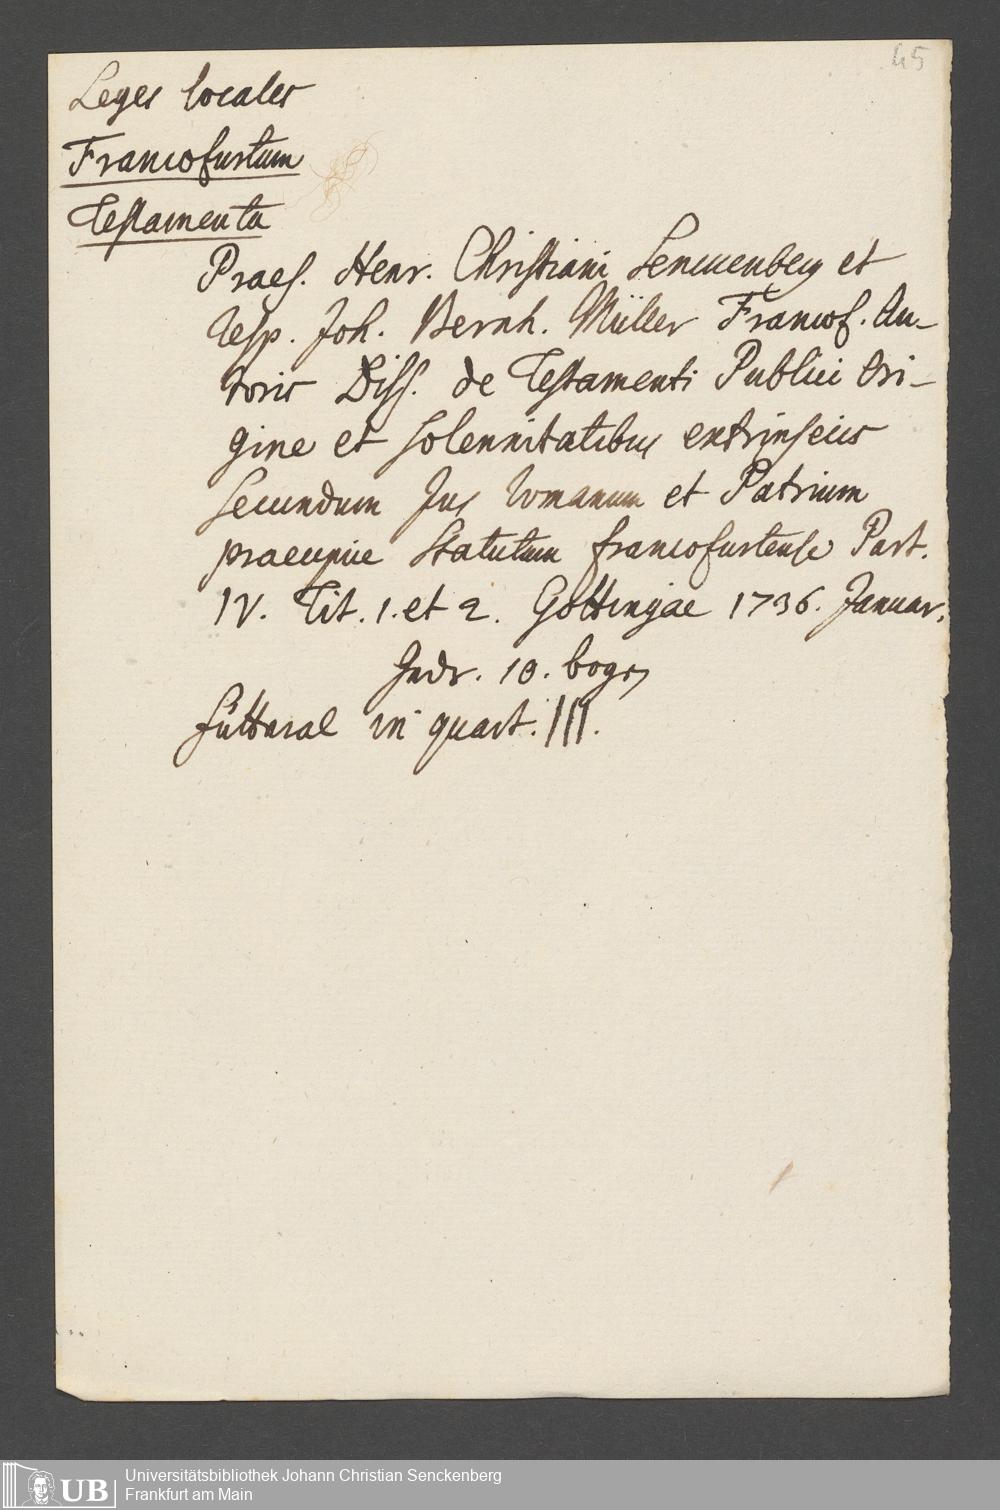 45
Leges locales
Francofurtum
Testamenta
Praes. Henr. Christiani Senckenberg et
Resp. Joh. Bernh. Müller Francof. Au-
toris Diss. de Testamenti Publici Ori-
gine et solennitatibus extrinsecis
secundum Jus Romanum et Patrium
praecipue Statutum francofurtense Part.
IV. Tit. 1. et 2. Gottingae 1736. Januar.
10. bogen
futteral in quart. III.
UB
Universitätsbibliothek Johann Christian Senckenberg
Frankfurt am Main